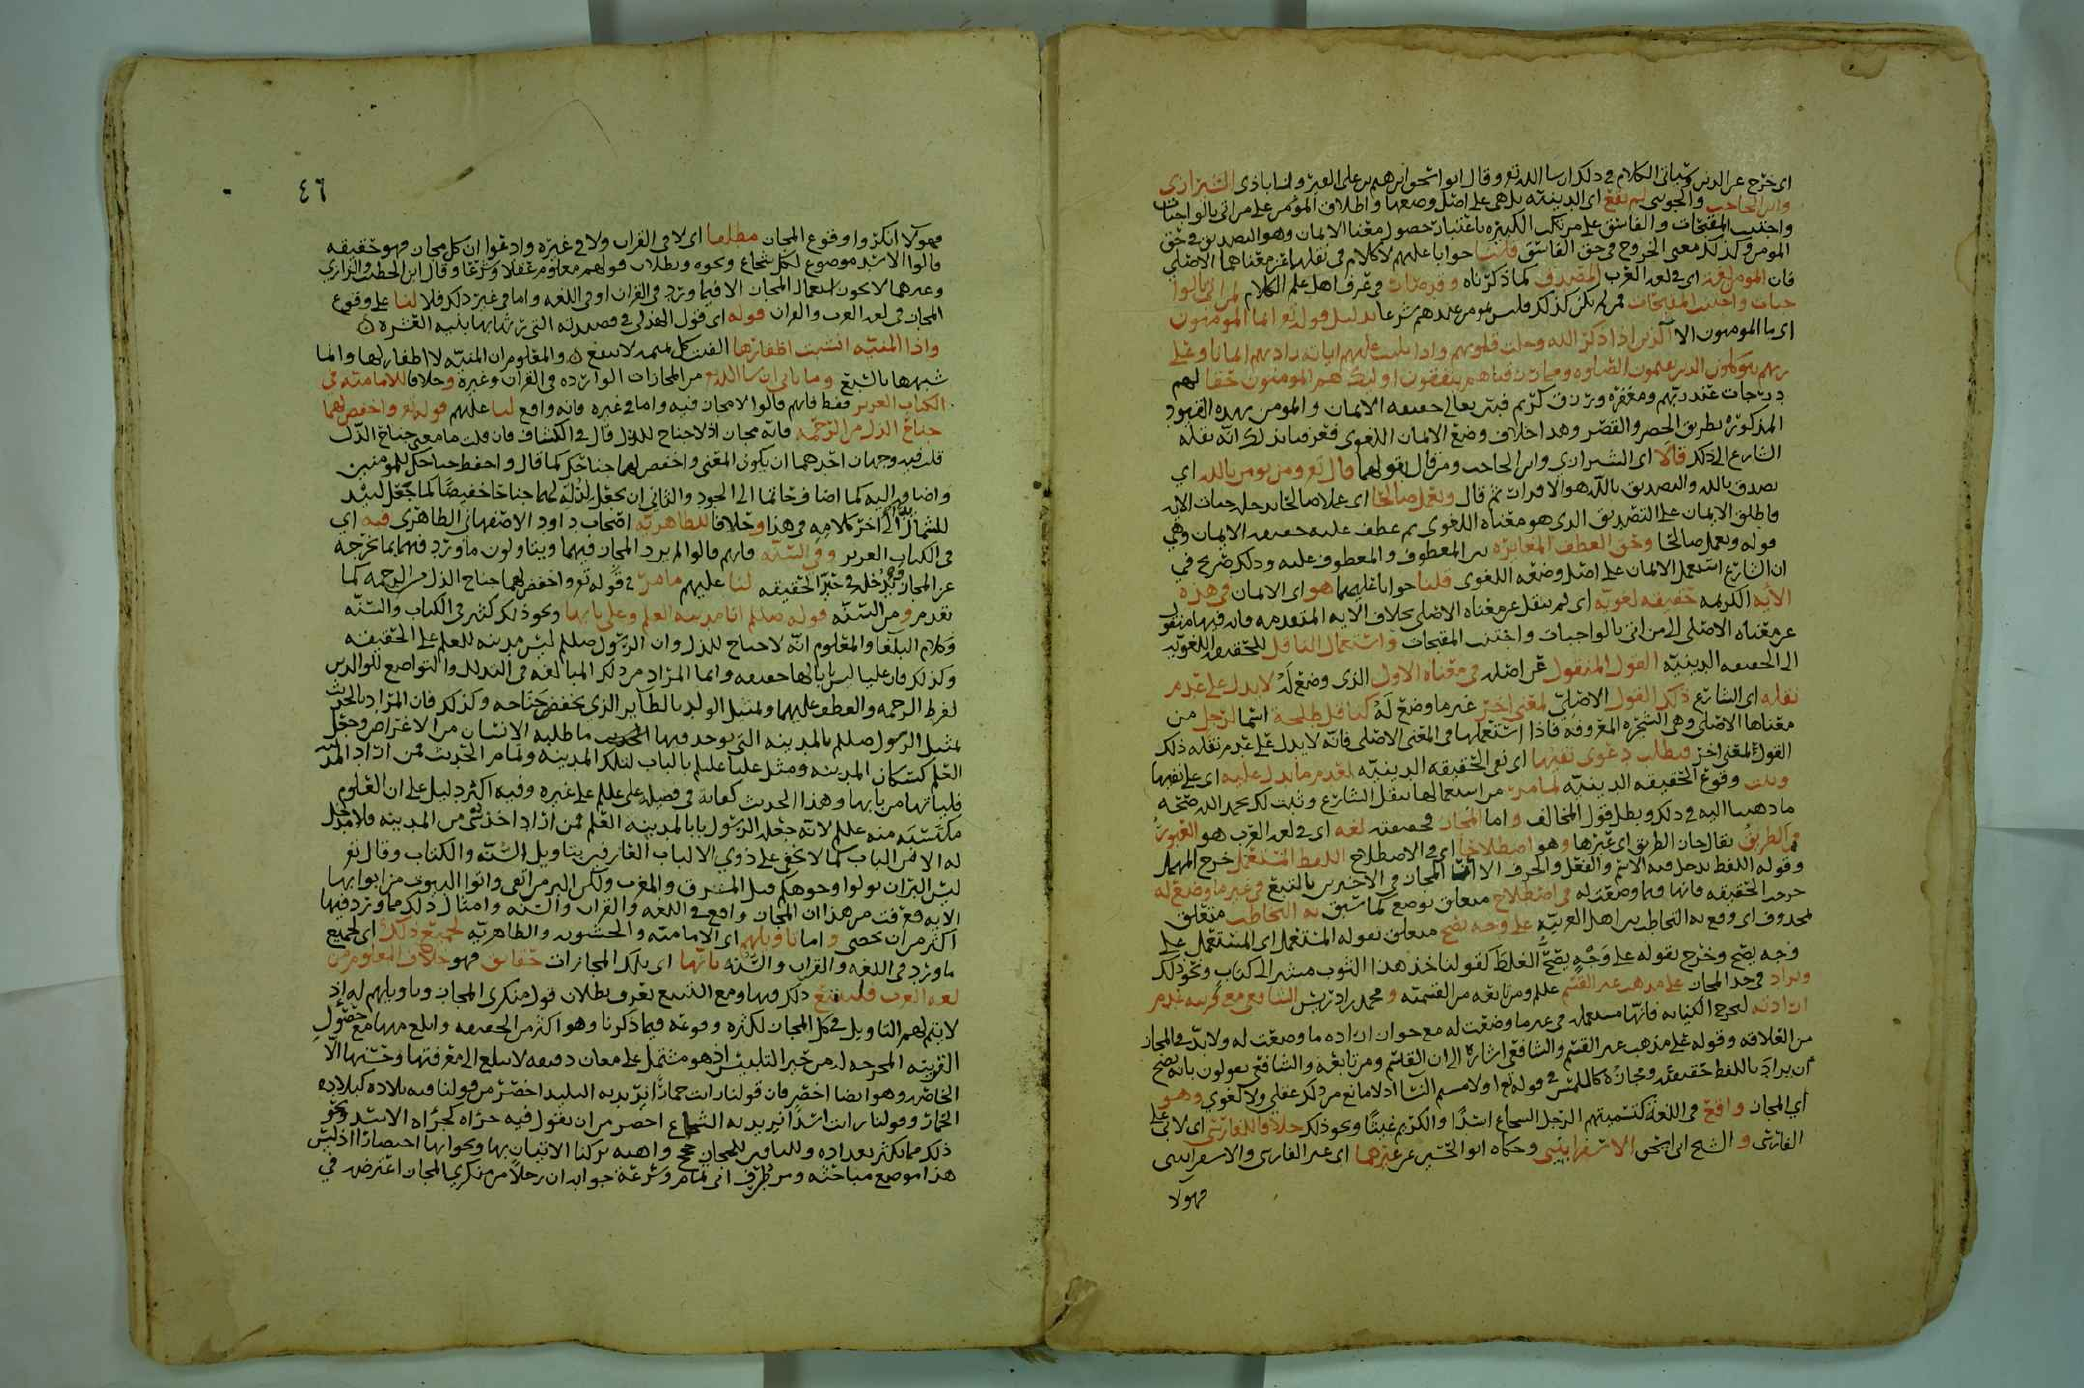 اى خرج عن الدين وسياتى الكلام فى ذلك ان شا الله تع وقال ابو اسحق ابرهيم بن على الفيروزاباذى الشيرازى
وابن الحاجب والجوينى لم تقع اى الدينيه بل هى على اصل وضعها واطلاق المؤمن على من اتى بالواجبات
واجتنب المقبحات والفاسق على مرتكب الكبيره باعتبار حصول معنا الايمان وهو التصديق فى حق
المومن وكذلك معنى الخروج فى حق الفاسق قلنا جوابا عليهم لا كلام فى نقلهما عن معناهما الاصلى
فان المومن لغة اى فى لغه العرب المصدق كما ذكرناه وقد صارت فى عرف اهل علم الكلام لمن اتى بالوا
جبات واجتنب المقبحات فمن لم يكن كذلك فليس بمومن عندهم شرعا بدليل قوله تع انما المومنون
اى ما المومنون الا الذين اذا ذكر الله وجلت قلوبهم واذا تليت عليهم اياته زادتهم ايمانا وعلى
ربهم يتوكلون الذين يقيمون الصلوه ومما رزقناهم ينفقون اولئك هم المومنون حقا لهم
درجات عند ربهم ومغفره ورزق كريم فبين تعالى حقيقه الايمان والمومن بهذه القيود
المذكوره بطريق الحصر والقصر وهذا خلاف وضع الايمان اللغوى فعرفنا بذلك انه نقله
الشارع الى ذلك قالا اى الشيرازى وابن الحاجب ومن قال بقولهما قال تع ومن يومن بالله اى
يصدق بالله والتصديق بالله هو الاقرار ثم قال ويعمل صالحا اى عملا صالحا يدخله جنات الايه
فاطلق الايمان على التصديق الذى هو معناه اللغوى ثم عطف عليه حقيقه الايمان وهى
قوله ويعمل صالحا وحق العطف المغايره بين المعطوف والمعطوف عليه وذلك صريح فى
ان الشارع استعمل الايمان على اصل وضعه اللغوى قلنا جوابا عليهما هو اى الايمان فى هذه
الايه الكريمه حقيقه لغويه اى لم ينقل عن معناه الاصلى بخلاف الايه المتقدمه فانه فيها منقول
عن معناه الاصلى الى من اتى بالواجبات واجتنب المقبحات واستعمال الناقل للحقيقه اللغويه
الى الحقيقه الدينيه القول المنقول عن اصله فى معناه الاول الذى وضع له لا يدل على عدم
نقله اى الشارع ذلك القول الاصلى لمعنى اخر غير ما وضع له كناقل طلحة اسما لرجل من
معناها الاصلى وهى الشجره المعروفه فاذا استعملها فى المعنى الاصلى فانه لا يدل على عدم نقله ذلك
القول لمعنى اخر فبطلت دعوى نفيها اى نفى الحقيقه الدينيه لعدم ما يدل عليه اى على نفيها
وثبت وقوع الحقيقه الدينيه لما مر من استعمالها بنقل الشارع وثبت لك بحمد الله صحه
ما ذهبنا اليه فى ذلك وبطل قول المخالف واما المجاز فحقيقته لغه اى فى لغه العرب هو العبور
فى الطريق يقال جاز الطريق اى عبرها وهو اصطلاحا اى فى الاصطلاح اللفظ المستعمل خرج المهمل
وقوله اللفظ يدخل فيه الاسم والفعل والحرف الا ان المجاز فى الاخيرين بالتبع فى غير ما وضع له
خرجت الحقيقه فانها فيما وضعت له فى اصطلاح متعلق بوضع كما سبق به التخاطب متعلق
بمحذوف اى وقع به التخاطب بين اهل العربيه على وجه يصح متعلق بقوله المستعمل اى المستعمل على
وجه يصح وخرج بقوله على وجه يصح الغلط كقولنا خذ هذا الثوب مشيرا الى كتاب ونحو ذلك
ويزاد فى حد المجاز على مذهب غير القسم علىلم ومن تابعه من القسميه ومحمد بن ادريس الشافعى مع قرينه عدم
ارادته لتخرج الكنايه فانها مستعمله فى غير ما وضعت له مع جواز اراده ما وضعت له ولا بد فى المجاز
من العلاقه وقوله على مذهب غير القسم والشافعى اشارة الى ان القسم ومن تابعه والشافعى يقولون بانه يصح
ان يراد باللفظ حقيقته ومجازه كاللمس فى قوله تع او لامستم النسا اذ لا مانع من ذلك عقلى ولا لغوى وهو
اى المجاز واقع فى اللغه كتسميتهم الرجل الشجاع اسدا والكريم غيثا ونحو ذلك خلافا للفارسى ابى على
الفارسى والشيخ ابى اسحق الاسفراينى وحكاه ابو الحسين عن غيرهما اى غير الفارسى والاسفراينى
فهولا
٤٦
فهولا انكروا وقوع المجاز مطلقا اى لا فى القران ولا فى غيره وادعوا ان كل مجاز فهو حقيقه
قالوا الاسد موضوع لكل شجاع ونحوه وبطلان قولهم معلوم عقلا وشرعا وقال ابن الخطيب الرازى
وغيرهما لا يجوز استعمال المجاز الا فيما ورد فى القران او فى اللغه واما فى غير ذلك فلا لنا على وقوع
المجاز فى لغه العرب والقران قوله اى قول الهذلى فى قصيدته التى رثا بها بنيه العشره
واذا المنيه انشبت اظفارها الفيت كل تميمه لا تنفع والمعلوم ان المنيه لا اظفار لها وانما
شبهها بالسبع وما ياتى ان شا الله تع من المجازات الوارده فى القران وغيره وخلافا للاماميه فى
الكتاب العزيز فقط فانهم قالوا لا مجاز فيه واما فى غيره فانه واقع لنا عليهم قوله تع واخفض لهما
جناح الذل من الرحمه فانه مجاز اذ لا جناح للذل قال فى الكشاف فان قلت ما معنى جناح الذل
قلت فيه وجهان احدهما ان يكون المعنى واخفض لهما جناحك كما قال واخفض جناحك للمومنين
واضافه اليه كما اضاف حاتما الى الجود والثانى ان تجعل لذله لهما جناحا خفيضا كما جعل لبيد
للشمال يدا الى اخر كلامه فى هذا وخلافا للظاهريه اصحاب داود الاصفهانى الظاهرى فيه اى
فى الكتاب العزيز وفى السنه فانهم قالوا لم يرد المجاز فيهما ويتاولون ما ورد فيهما بما يخرجه
عن المجاز ويدخله فى حيز الحقيقه لنا عليهم ما مر فى قوله تع واخفض لهما جناح الذل من الرحمه كما
تقدم ومن السنه قوله صللم انا مدينه العلم وعلى بابها ونحو ذلك كثير فى الكتاب والسنه
وكلام البلغا والمعلوم انه لا جناح للذل وان الرسول صللم ليس مدينه للعلم على الحقيقه
وكذلك فان عليا ليس بابا لها حقيقه وانما المراد من ذلك المبالغه فى التذلل والتواضع للوالدين
لفرط الرحمه والعطف عليهما ومثل الولد بالطاير الذى يخفض جناحه وكذلك فان المراد بالحديث
تمثيل الرسول صللم بالمدينه التى يوجد فيها ما طلبه الانسان من الاغراض وجعل
العلم كسكان المدينه ومثل عليا عليلم بالباب لتلك المدينه وتمام الحديث فمن اراد المدينه
فلياتها من بابها وهذا الحديث كفايه فى فضيله على عليلم على غيره وفيه اكثر دليل على ان العلوم
مكتسبه منه عليلم لانه جعله الرسول بابا لمدينه العلم فمن اراد اخذ شى من المدينه فلا مدخل
له الا من الباب كما لا يخفى على ذوي الالباب العارفين بتاويل السنه والكتاب وقال تع
ليس البر ان تولوا وجوهكم قبل المشرق والمغرب ولكن البر من اتقى واتوا البيوت من ابوابها
الايه فعرفت من هذا ان المجاز واقع فى اللغه والقران والسنه وامثال ذلك مما ورد فيها
اكثر من ان تحصى واما تاويلهم اى الاماميه والحشويه والظاهريه لجميع ذلك اى لجميع
ما ورد فى اللغه والقران والسنه بانها اى تلك المجازات حقائق فهو خلاف المعلوم من
لغه العرب فليتتبع ذلك فيها ومع التتبع يعرف بطلان قول منكرى المجاز وتاويلهم له اذ
لا يتم لهم التاويل فى كل المجاز لكثره وقوعه فيما ذكرنا وهو اكثر من الحقيقه وابلغ منها مع حصول
القرينه المخرجه له من حيز التلبيس اذ هو مشتمل على معان دقيقه لا يبلغ الى معرفتها وحسنها الا
الخاصه وهو ايضا اخصر فان قولنا رايت حمارا نريد به البليد اخصر من قولنا فيه بلاده كبلاده
الحمار وقولنا رايت اسدا نريد به الشجاع اخصر من ان نقول فيه جراه كجراه الاسد ونحو
ذلك مما يكثر تعداده وللنافين للمجاز حجج واهيه تركنا الاتيان بها وبجوابها اختصارا اذ ليس
هذا موضع مباحثه ومن ظريف ابى تمام وسرعة جوابه ان رجلا من منكرى المجاز اعترضه فى